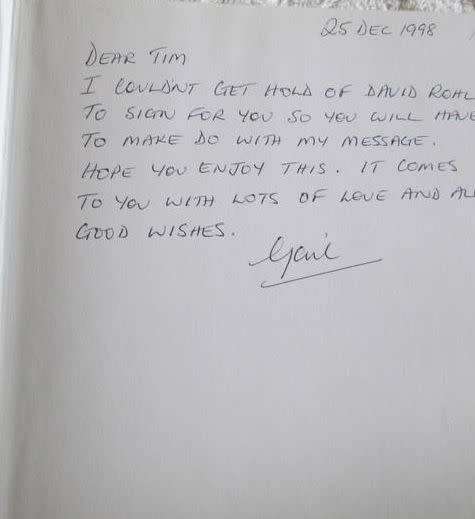 25 DEC 1998
DEAR TIM
I COULDN'T GET HOLD OF DAVID ROHL
TO SIGN FOR YOU SO YOU WILL HAVE
TO MAKE DO WITH MY MESSAGE.
HOPE YOU ENJOY THIS. IT COMES
TO YOU WITH LOTS OF LOVE AND AL
GOOD WISHES.